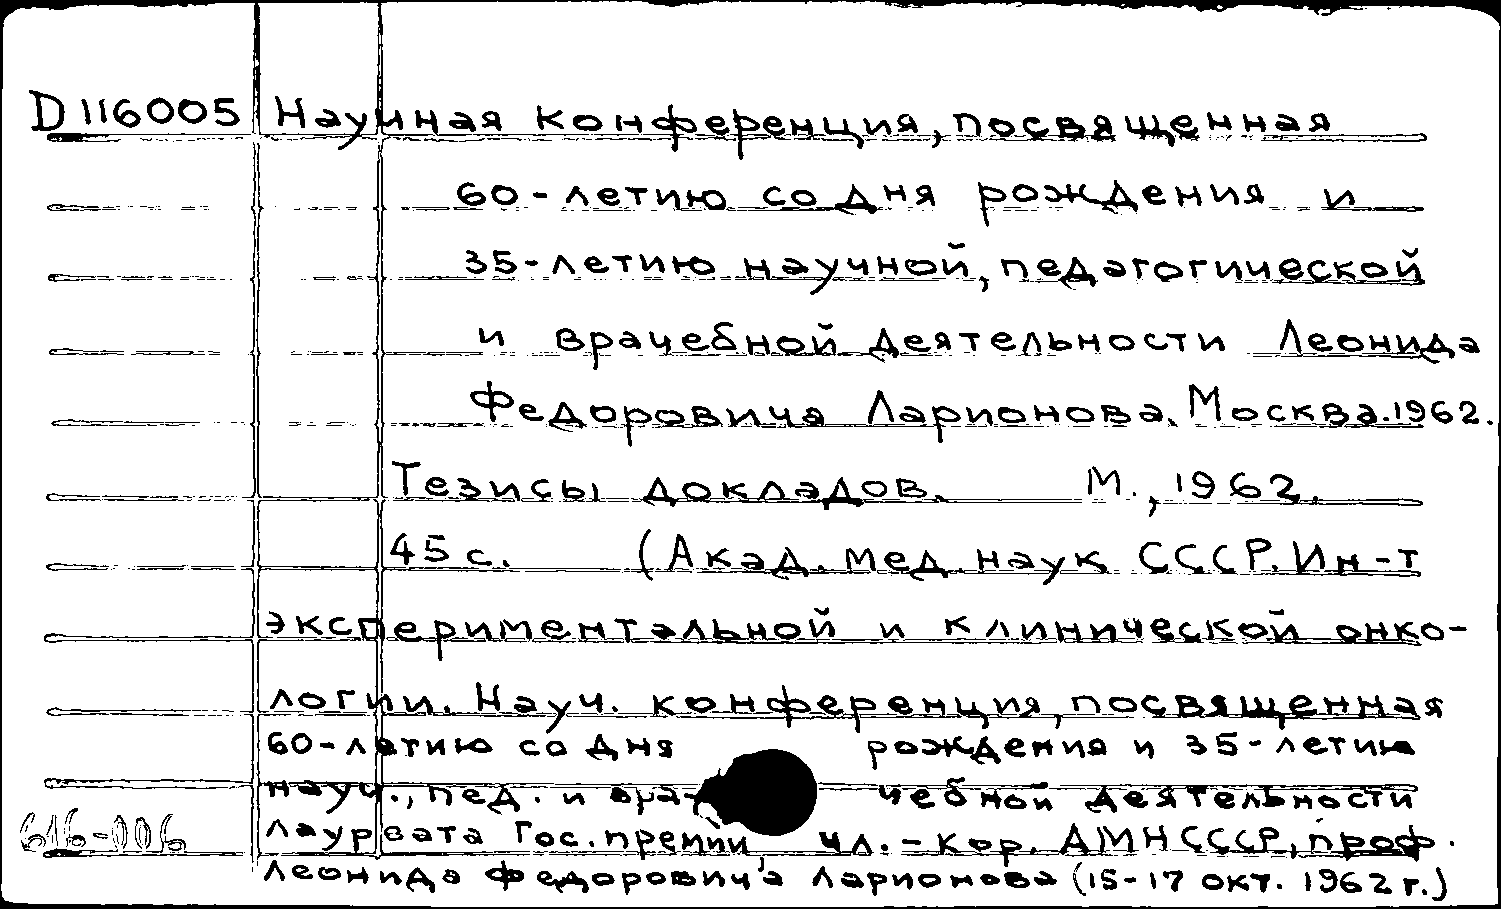 D116005 Научная конференция, посвященная
60-летию со дня рождения и
35-летию научной, педагогической
и врачебной деятельности Леонида
Федоровича Ларионова. Москва. 1962.
Тезисы докладов. М., 1962.
45 с. (Акад. мед. наук СССР. Ин-т
экспериментальной и клинической онко-
логии. Науч. конференция, посвященная
60-летию со дня рождения и 35-летию
науч., пед. и вра- чебной деятельности
616-006 лауреата Гос. премии, чл.-кор. АМН СССР, проф.
Леонида Федоровича Ларионова (15-17 окт. 1962 г.)